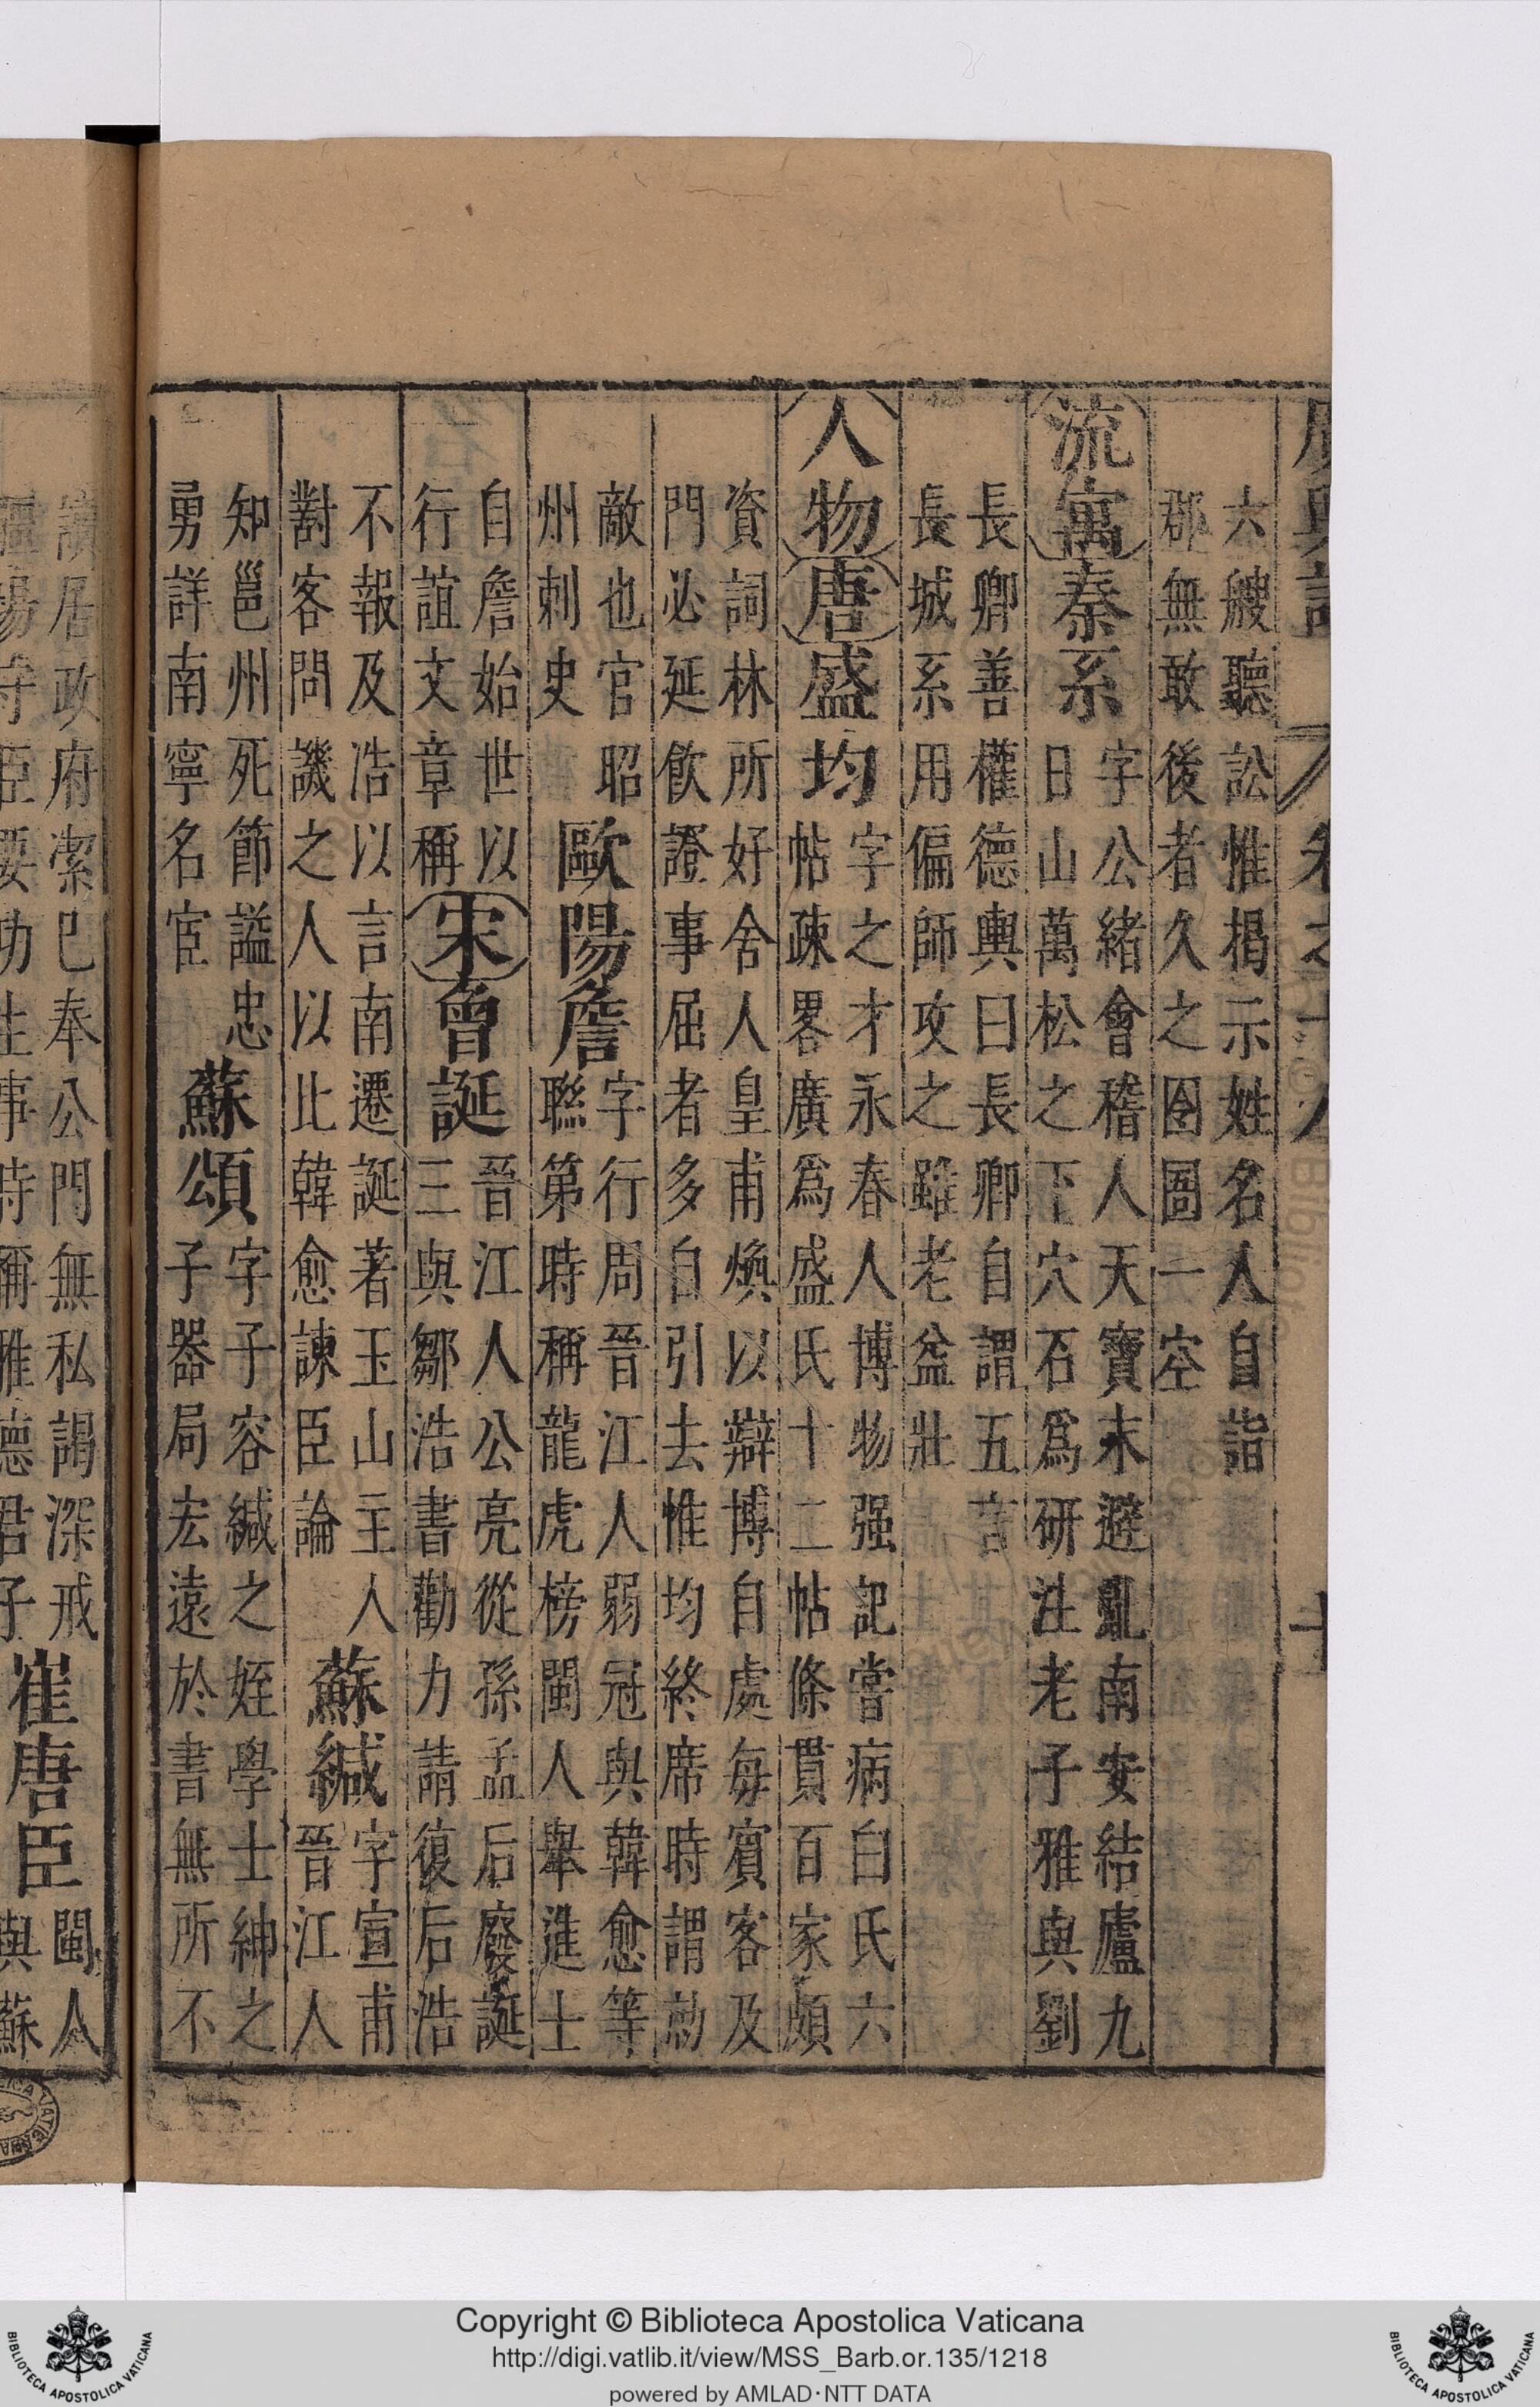 廣輿記 卷之十八 十
六艘聽訟惟揭示姓名人自詣
郡無敢後者久之囹圄一空
流寓 秦系
字公緒會稽人天寶末避亂南安結廬九
日山萬松之下穴石爲研注老子雅與劉
長卿善權德輿曰長卿自謂五言
長城系用偏師攻之雖老益壯
人物 唐 盛均
字之才永春人博物强記嘗病白氏六
帖疎畧廣爲盛氏十二帖條貫百家頗
資詞林所好舍人皇甫煥以辯博自處每賓客及
門必延飲證事屈者多自引去惟均終席時謂勍
敵也官昭
州刺史
歐陽詹
字行周晉江人弱冠與韓愈等
聯第時稱龍虎榜閩人舉進士
自詹始世以
行誼文章稱
宋 曾誕
晉江人公亮從孫孟后廢誕
三與鄒浩書勸力請復后浩
不報及浩以言南遷誕著玉山主人
對客問譏之人以此韓愈諫臣論
蘇緘
字宣甫
晉江人
知邕州死節謚忠
勇詳南寧名宦
蘇頌
字子容緘之姪學士紳之
子器局宏遠於書無所不
讀居政府潔已奉公門無私謁深戒
疆場守臣要功生事時稱雅德君子
崔唐臣
閩人
與蘇
Copyright © Biblioteca Apostolica Vaticana
http://digi.vatlib.it/view/MSS_Barb.or.135/1218
powered by AMLAD·NTT DATA
BIBLIOTECA APOSTOLICA VATICANA
BIBLIOTECA APOSTOLICA VATICANA